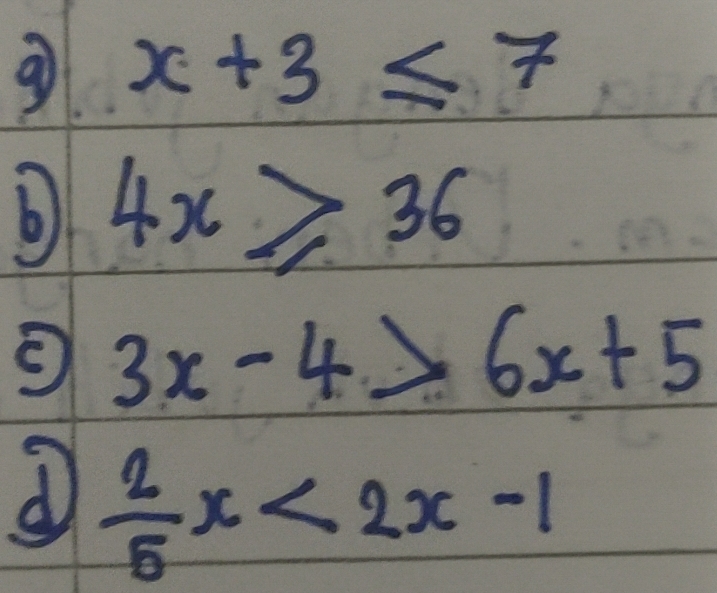 a) x + 3 ≤ 7
b) 4x ≥ 36
c) 3x - 4 > 6x + 5
d) 2/5 x < 2x - 1